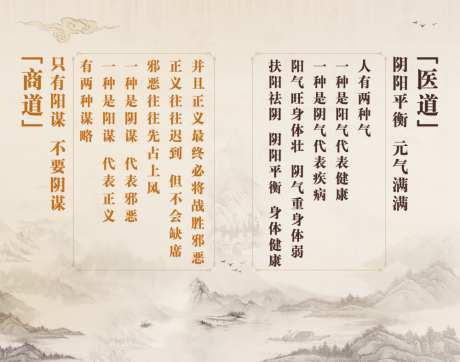 「医道」
阴阳平衡 元气满满
人有两种气
一种是阳气代表健康
一种是阴气代表疾病
阳气旺身体壮 阴气重身体弱
扶阳祛阴 阴阳平衡 身体健康
并且正义最终必将战胜邪恶
正义往往迟到 但不会缺席
邪恶往往先占上风
一种是阴谋 代表邪恶
一种是阳谋 代表正义
有两种谋略
只有阳谋 不要阴谋
「商道」